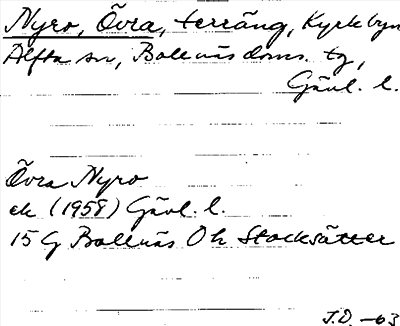 Nyro, Övra, terräng, Kyrkbyn
Alfta sn, Bollnäs doms. tg,
Gävl. l.
Övra Nyro
ek (1958) Gävl. l.
15 G Bollnäs Ok Stocksätter
J.D. -63